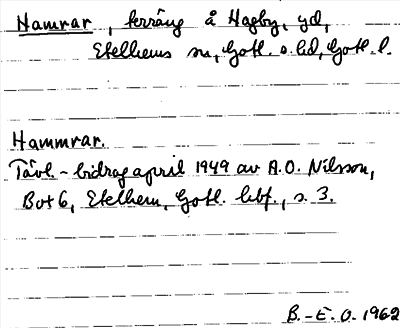 Hamrar, terräng å Hagby, yd,
Etelhems sn, Gotl. s. hd, Gotl. l.
Hammrar.
Tävl.-bidrag april 1949 av A.O. Nilsson,
Box 6, Etelhem, Gotl. lbf., s. 3.
B.-E. O. 1962